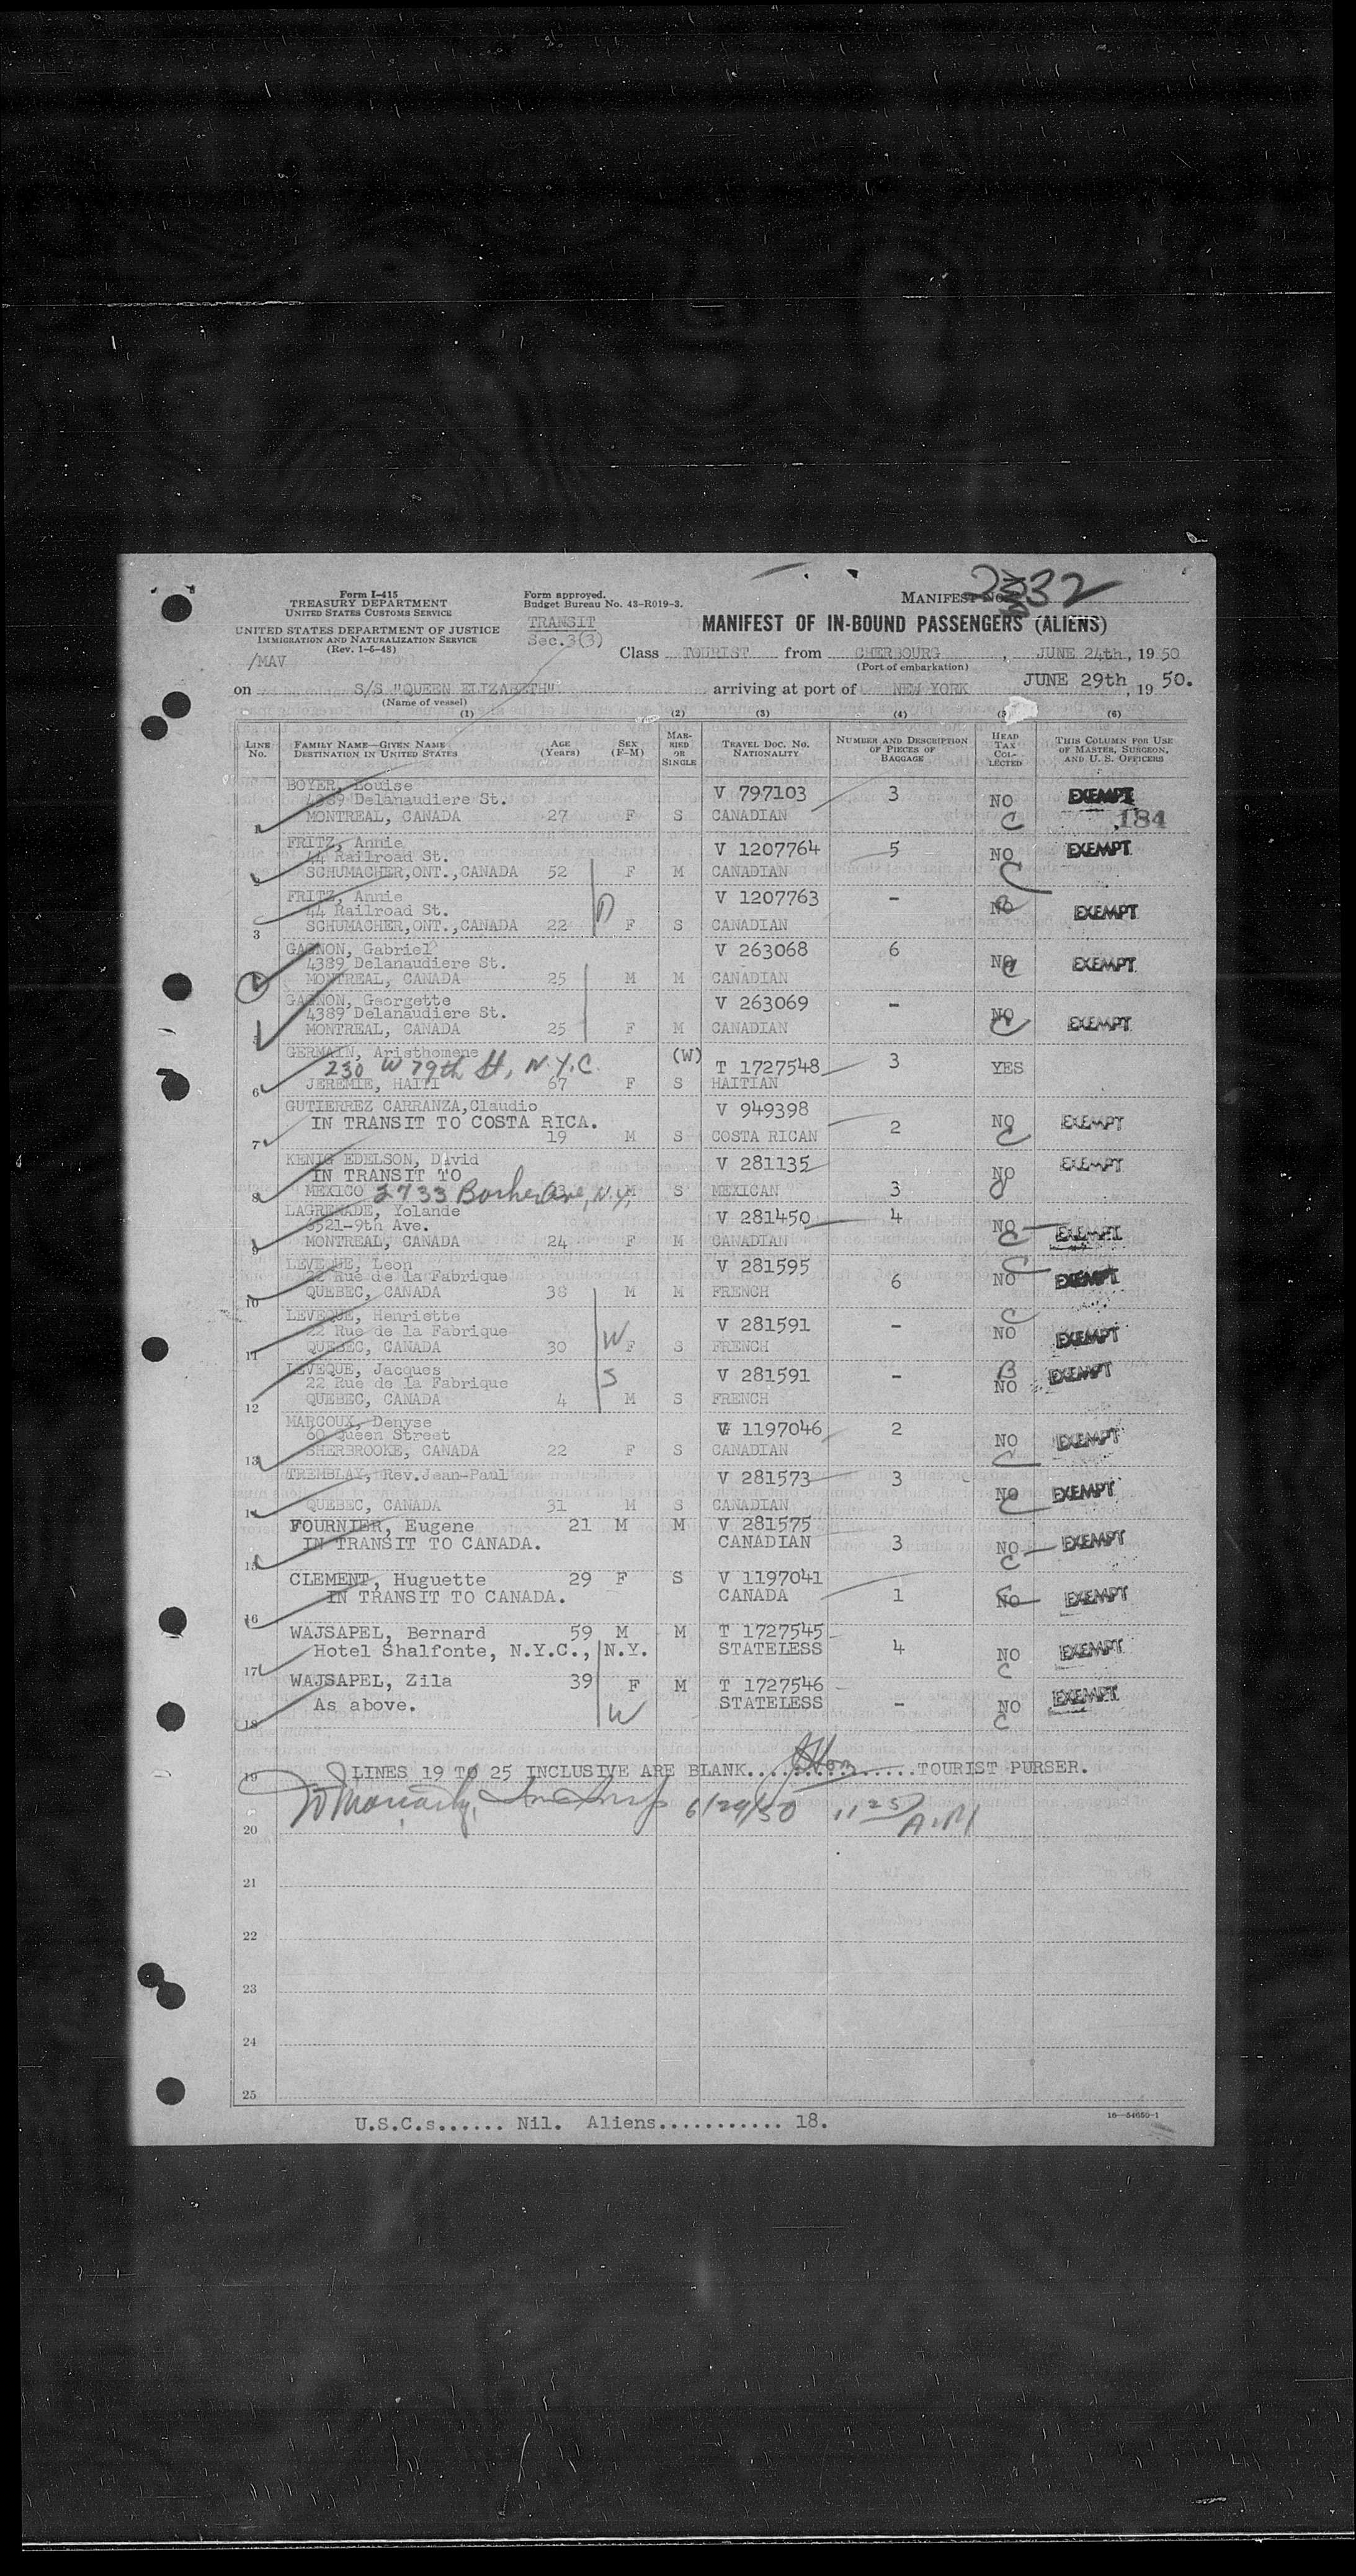 Form I-415
TREASURY DEPARTMENT
UNITED STATES CUSTOMS SERVICE
UNITED STATES DEPARTMENT OF JUSTICE
IMMIGRATION AND NATURALIZATION SERVICE
(Rev. 1-6-48)
/MAV
Form approved.
Budget Bureau No. 43-R019-3.
TRANSIT
Sec.3(3)
MANIFEST NO. 32
MANIFEST OF IN-BOUND PASSENGERS (ALIENS)
Class TOURIST from CHERBOURG, JUNE 24th, 19 50
(Port of embarkation)
on S/S "QUEEN ELIZABETH" arriving at port of NEW YORK JUNE 29th, 19 50.
(Name of vessel)
(1) (2) (3) (4) (5) (6)
LINE No. FAMILY NAME—GIVEN NAME DESTINATION IN UNITED STATES AGE (Years) SEX (F-M) MARRIED OR SINGLE TRAVEL DOC. NO. NATIONALITY NUMBER AND DESCRIPTION OF PIECES OF BAGGAGE HEAD TAX COLLECTED THIS COLUMN FOR USE OF MASTER, SURGEON, AND U. S. OFFICERS
BOYER, Louise V 797103 3 NO EXEMPT
4389 Delanaudiere St.
1 MONTREAL, CANADA 27 F S CANADIAN C 184
FRITZ, Annie V 1207764 5 NO EXEMPT
44 Railroad St.
2 SCHUMACHER,ONT.,CANADA 52 F M CANADIAN C
FRITZ, Annie V 1207763 - NO EXEMPT
44 Railroad St. D
3 SCHUMACHER,ONT.,CANADA 22 F S CANADIAN
GAGNON, Gabriel V 263068 6 NO EXEMPT
4389 Delanaudiere St.
4 MONTREAL, CANADA 25 M M CANADIAN C
GAGNON, Georgette V 263069 - NO EXEMPT
4389 Delanaudiere St.
5 MONTREAL, CANADA 25 F M CANADIAN C
GERMAIN, Aristhomene (W) T 1727548 3 YES
230 W 79th St, N.Y.C.
6 JEREMIE, HAITI 67 F S HAITIAN
GUTIERREZ CARRANZA,Claudio V 949398 NO EXEMPT
IN TRANSIT TO COSTA RICA. 2
7 19 M S COSTA RICAN C
KENIG EDELSON, David V 281135 EXEMPT
IN TRANSIT TO NO
8 MEXICO 2733 Ave, N.Y. M S MEXICAN 3
LAGRENADE, Yolande V 281450 4 NO EXEMPT
6521-9th Ave.
9 MONTREAL, CANADA 24 F M CANADIAN C
LEVEQUE, Leon V 281595 C
22 Rue de la Fabrique 6 NO EXEMPT
10 QUEBEC, CANADA 38 M M FRENCH
LEVEQUE, Henriette V 281591 - C
22 Rue de la Fabrique W NO EXEMPT
11 QUEBEC, CANADA 30 F S FRENCH
LEVEQUE, Jacques V 281591 - B EXEMPT
22 Rue de la Fabrique S NO
12 QUEBEC, CANADA 4 M S FRENCH
MARCOUX, Denyse V 1197046 2
60 Queen Street NO EXEMPT
13 SHERBROOKE, CANADA 22 F S CANADIAN C
TREMBLAY, Rev.Jean-Paul V 281573 3 NO EXEMPT
14 QUEBEC, CANADA 31 M S CANADIAN C
FOURNIER, Eugene 21 M M V 281575
15 IN TRANSIT TO CANADA. CANADIAN 3 NO C EXEMPT
CLEMENT, Huguette 29 F S V 1197041
16 IN TRANSIT TO CANADA. CANADA 1 NO EXEMPT
WAJSAPEL, Bernard 59 M M T 1727545
17 Hotel Shalfonte, N.Y.C., N.Y. STATELESS 4 NO C EXEMPT
WAJSAPEL, Zila 39 F M T 1727546
18 As above. W STATELESS - NO C EXEMPT
19 LINES 19 TO 25 INCLUSIVE ARE BLANK...............TOURIST PURSER.
6/29/50 11 25 A.M
20
21
22
23
24
25
U.S.C.s...... Nil. Aliens........... 18.
16—54650-1